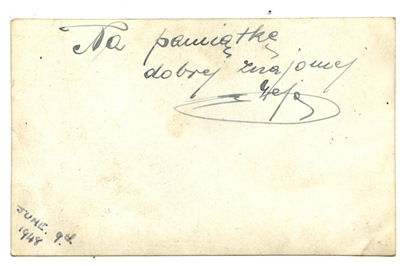 Na pamiątkę
dobrej znajomej
JUNE. 9th.
1948